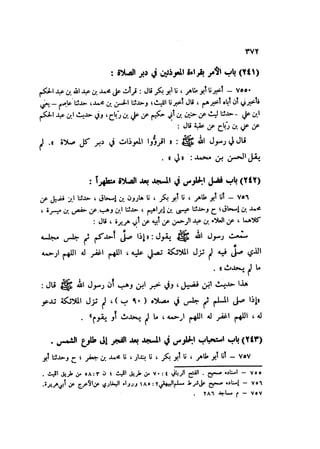 ٣٧٢
(٢٤١) باب الأمر بقراءة المعوذتين في دبر الصلاة :
٧٥٥ – أخبرنا أبو طاهر ، نا أبو بكر ؛ قال : قرأت على محمد بن عبد الله بن عبد الحكم
فأخبرني أن أباه أخبرهم ، قال : أخبرنا الليث ؛ وحدثنا الحسن بن محمد ، حدثنا عاصم – يعني
ابن علي - حدثنا ليث عن حنين بن أبي حكيم عن علي بن رباح ، وفي حديث ابن عبد الحكم
عن علي بن رباح عن عقبة قال :
قال لي رسول الله ﷺ : « اقرؤوا المعوذات في دبر كل صلاة ». لم
يقل الحسن بن محمد : « لي » .
(٢٤٢) باب فضل الجلوس في المسجد بعد الصلاة متطهراً :
٧٥٦ – أنا أبو طاهر ، نا أبو بكر ، نا هارون بن إسحاق ، حدثنا ابن فضيل عن
محمد بن إسحاق ؛ ح وحدثنا عيسى بن إبراهيم ، حدثنا ابن وهب عن حفص بن ميسرة ،
كلاهما ، عن العلاء بن عبد الرحمن عن أبيه عن أبي هريرة ، قال :
سمعت رسول الله ﷺ يقول : « إذا صلّى أحدكم ثم جلس مجلسه
الذي صلى فيه لم تزل الملائكة تصلي عليه ، اللهم اغفر له اللهم ارحمه
ما لم يحدث » .
هذا حديث ابن فضيل ، وفي خبر ابن وهب أن رسول الله ﷺ قال :
«إذا صلّى المسلم ثم جلس في مصلاه (٩٠ ب) ، لم تزل الملائكة تدعو
له ، اللهم اغفر له اللهم ارحمه ، ما لم يحدث أو يقوم» .
(٢٤٣) باب استحباب الجلوس في المسجد بعد الفجر إلى طلوع الشمس .
٧٥٧ – أنا أبو طاهر ، نا أبو بكر ، نا بندار ، نا محمد بن جعفر ؛ ح وحدثنا أبو
٧٥٥ – إسناده صحيح . الفتح الرباني ٤ : ٧٠ من طريق الليث ؛ ن ٣ : ٥٨ من طريق الليث .
٧٥٦ – إسناده صحيح على شرط مسلم البيهقي ٢ : ١٨٥ ورواه البخاري عن الأعرج عن أبي هريرة.
٧٥٧ – م مساجد ٢٨٦ .